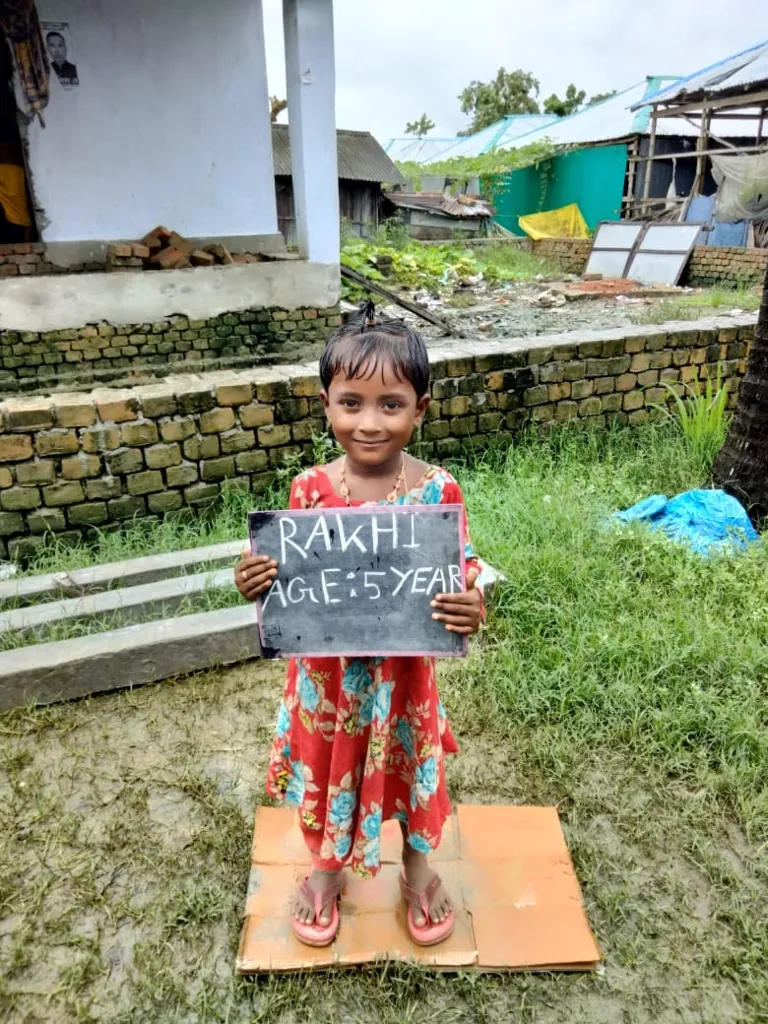 RAKHI
AGE:5 YEAR